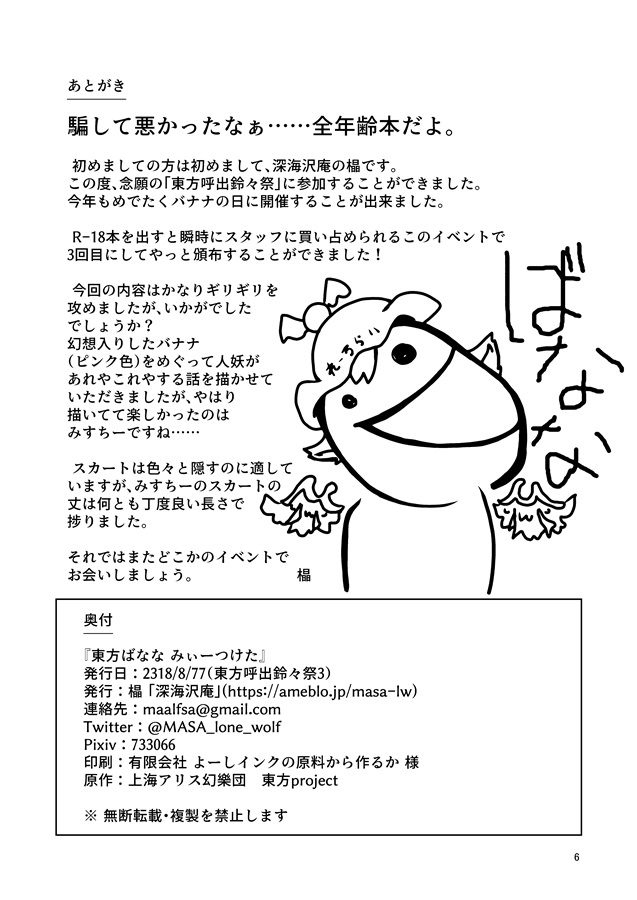 あとがき
騙して悪かったなぁ……全年齢本だよ。
初めましての方は初めまして、深海沢庵の榀です。
この度、念願の「東方呼出鈴々祭」に参加することができました。
今年もめでたくバナナの日に開催することが出来ました。
R-18本を出すと瞬時にスタッフに買い占められるこのイベントで
3回目にしてやっと頒布することができました！
今回の内容はかなりギリギリを
攻めましたが、いかがでした
でしょうか？
幻想入りしたバナナ
(ピンク色)をめぐって人妖が
あれやこれやする話を描かせて
いただきましたが、やはり
描いてて楽しかったのは
みすちーですね……
スカートは色々と隠すのに適して
いますが、みすちーのスカートの
丈は何とも丁度良い長さで
捗りました。
それではまたどこかのイベントで
お会いしましょう。
榀
れーちらい
ばななな
奥付
『東方ばなな みぃーつけた』
発行日：2318/8/77(東方呼出鈴々祭3)
発行：榀「深海沢庵」(https://ameblo.jp/masa-lw)
連絡先：maalfsa@gmail.com
Twitter：@MASA_lone_wolf
Pixiv：733066
印刷：有限会社 よーしインクの原料から作るか 様
原作：上海アリス幻樂団　東方project
※ 無断転載・複製を禁止します
6